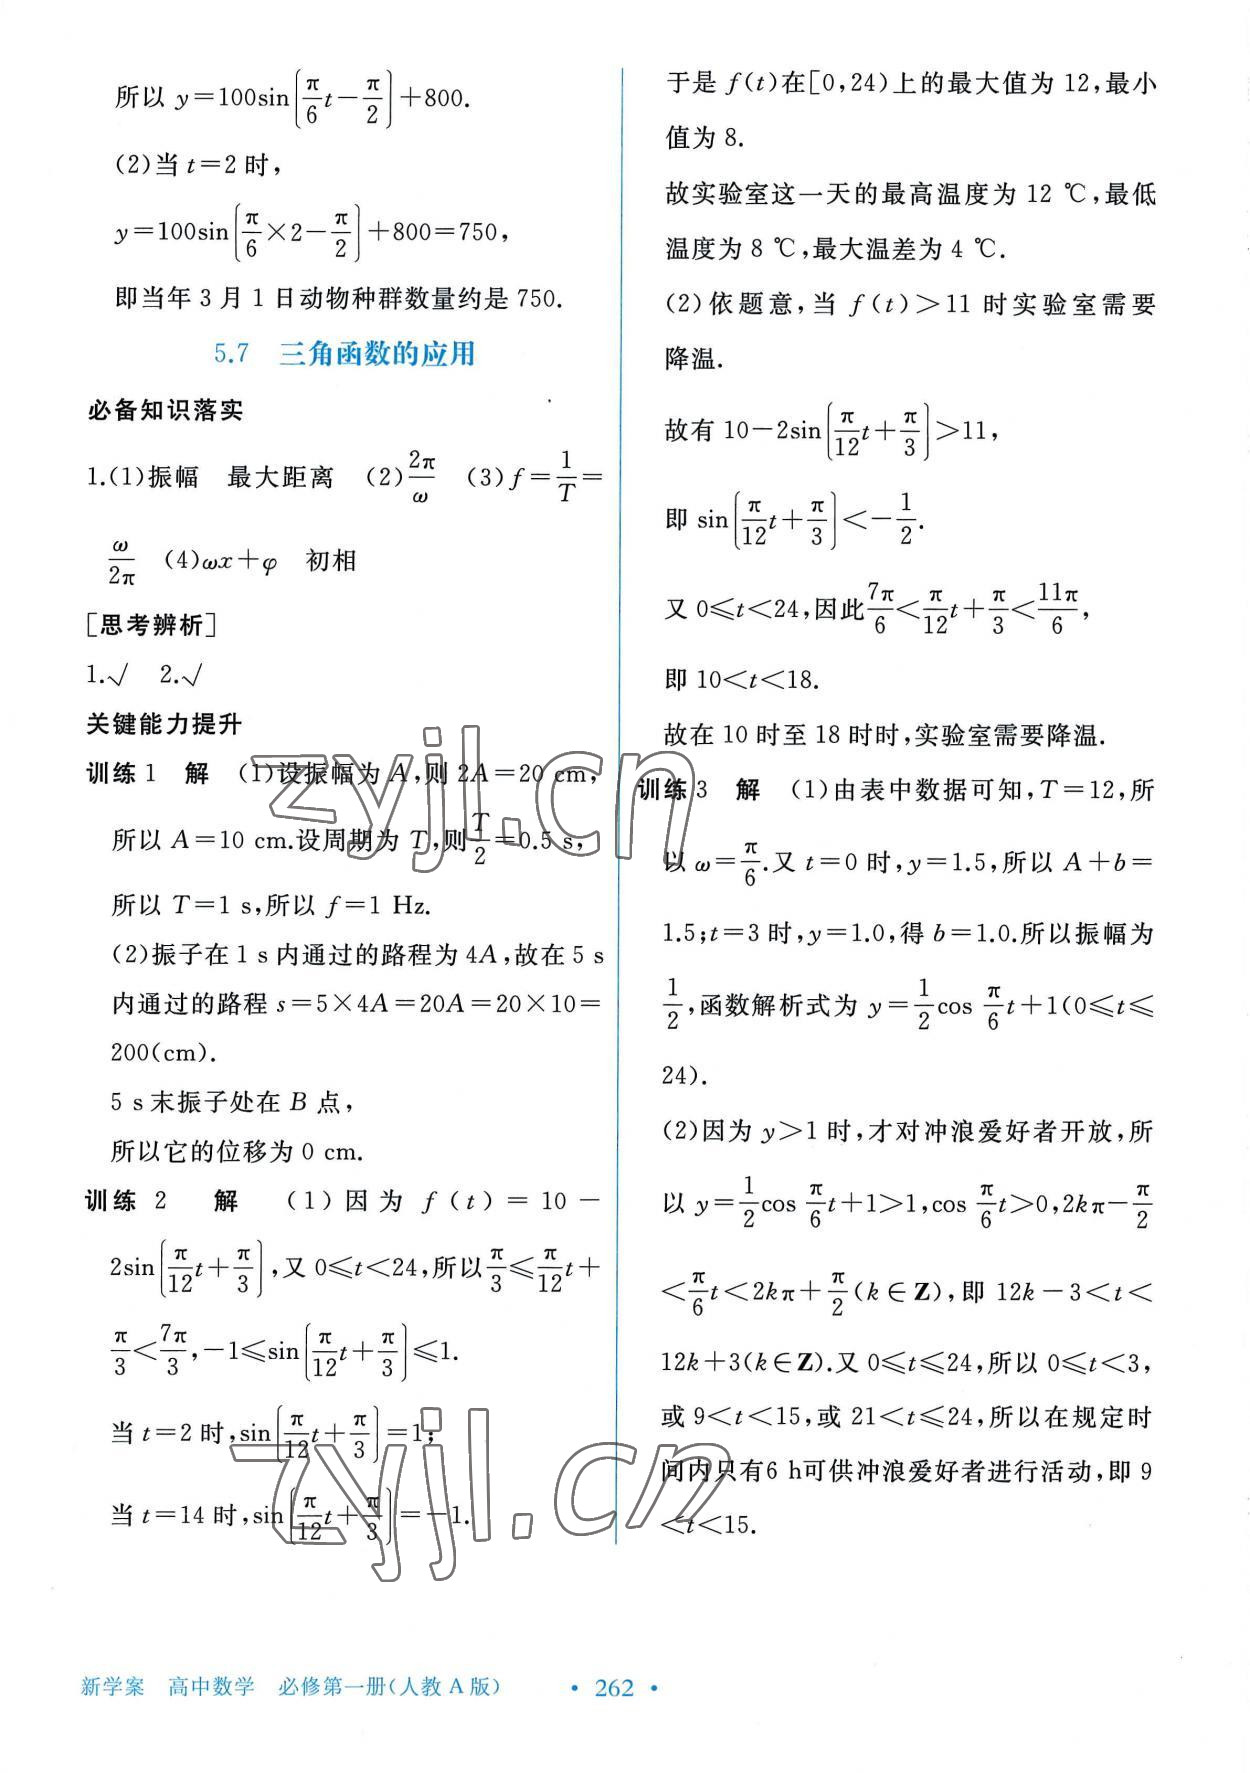 所以 y=100sin(π/6 t-π/2)+800.
(2)当 t=2 时,
y=100sin(π/6×2-π/2)+800=750,
即当年 3 月 1 日动物种群数量约是 750.
5.7 三角函数的应用
必备知识落实
1.(1)振幅 最大距离 (2)2π/ω (3)f=1/T=
ω/2π (4)ωx+φ 初相
[思考辨析]
1.√ 2.√
关键能力提升
训练 1 解 (1)设振幅为 A,则 2A=20 cm,
所以 A=10 cm.设周期为 T,则T/2=0.5 s,
所以 T=1 s,所以 f=1 Hz.
(2)振子在 1 s 内通过的路程为 4A,故在 5 s
内通过的路程 s=5×4A=20A=20×10=
200(cm).
5 s末振子处在 B 点,
所以它的位移为 0 cm.
训练 2 解 (1)因为 f(t)=10-
2sin(π/12 t+π/3),又 0≤t<24,所以π/3≤π/12 t+
π/3<7π/3,-1≤sin(π/12 t+π/3)≤1.
当 t=2 时,sin(π/12 t+π/3)=1;
当 t=14 时,sin(π/12 t+π/3)=-1.
于是 f(t)在[0,24)上的最大值为 12,最小
值为 8.
故实验室这一天的最高温度为 12 ℃,最低
温度为 8 ℃,最大温差为 4 ℃.
(2)依题意,当 f(t)>11 时实验室需要
降温.
故有 10-2sin(π/12 t+π/3)>11,
即 sin(π/12 t+π/3)<-1/2.
又 0≤t<24,因此7π/6<π/12 t+π/3<11π/6,
即 10<t<18.
故在 10 时至 18 时时,实验室需要降温.
训练 3 解 (1)由表中数据可知,T=12,所
以 ω=π/6.又 t=0 时,y=1.5,所以 A+b=
1.5;t=3 时,y=1.0,得 b=1.0.所以振幅为
1/2,函数解析式为 y=1/2cos π/6 t+1(0≤t≤
24).
(2)因为 y>1 时,才对冲浪爱好者开放,所
以 y=1/2cos π/6 t+1>1,cos π/6 t>0,2kπ-π/2
<π/6 t<2kπ+π/2(k∈Z),即 12k-3<t<
12k+3(k∈Z).又 0≤t≤24,所以 0≤t<3,
或 9<t<15,或 21<t≤24,所以在规定时
间内只有6 h可供冲浪爱好者进行活动,即 9
<t<15.
zyjl.cn
zyjl.cn
新学案 高中数学 必修第一册(人教 A 版) • 262 •